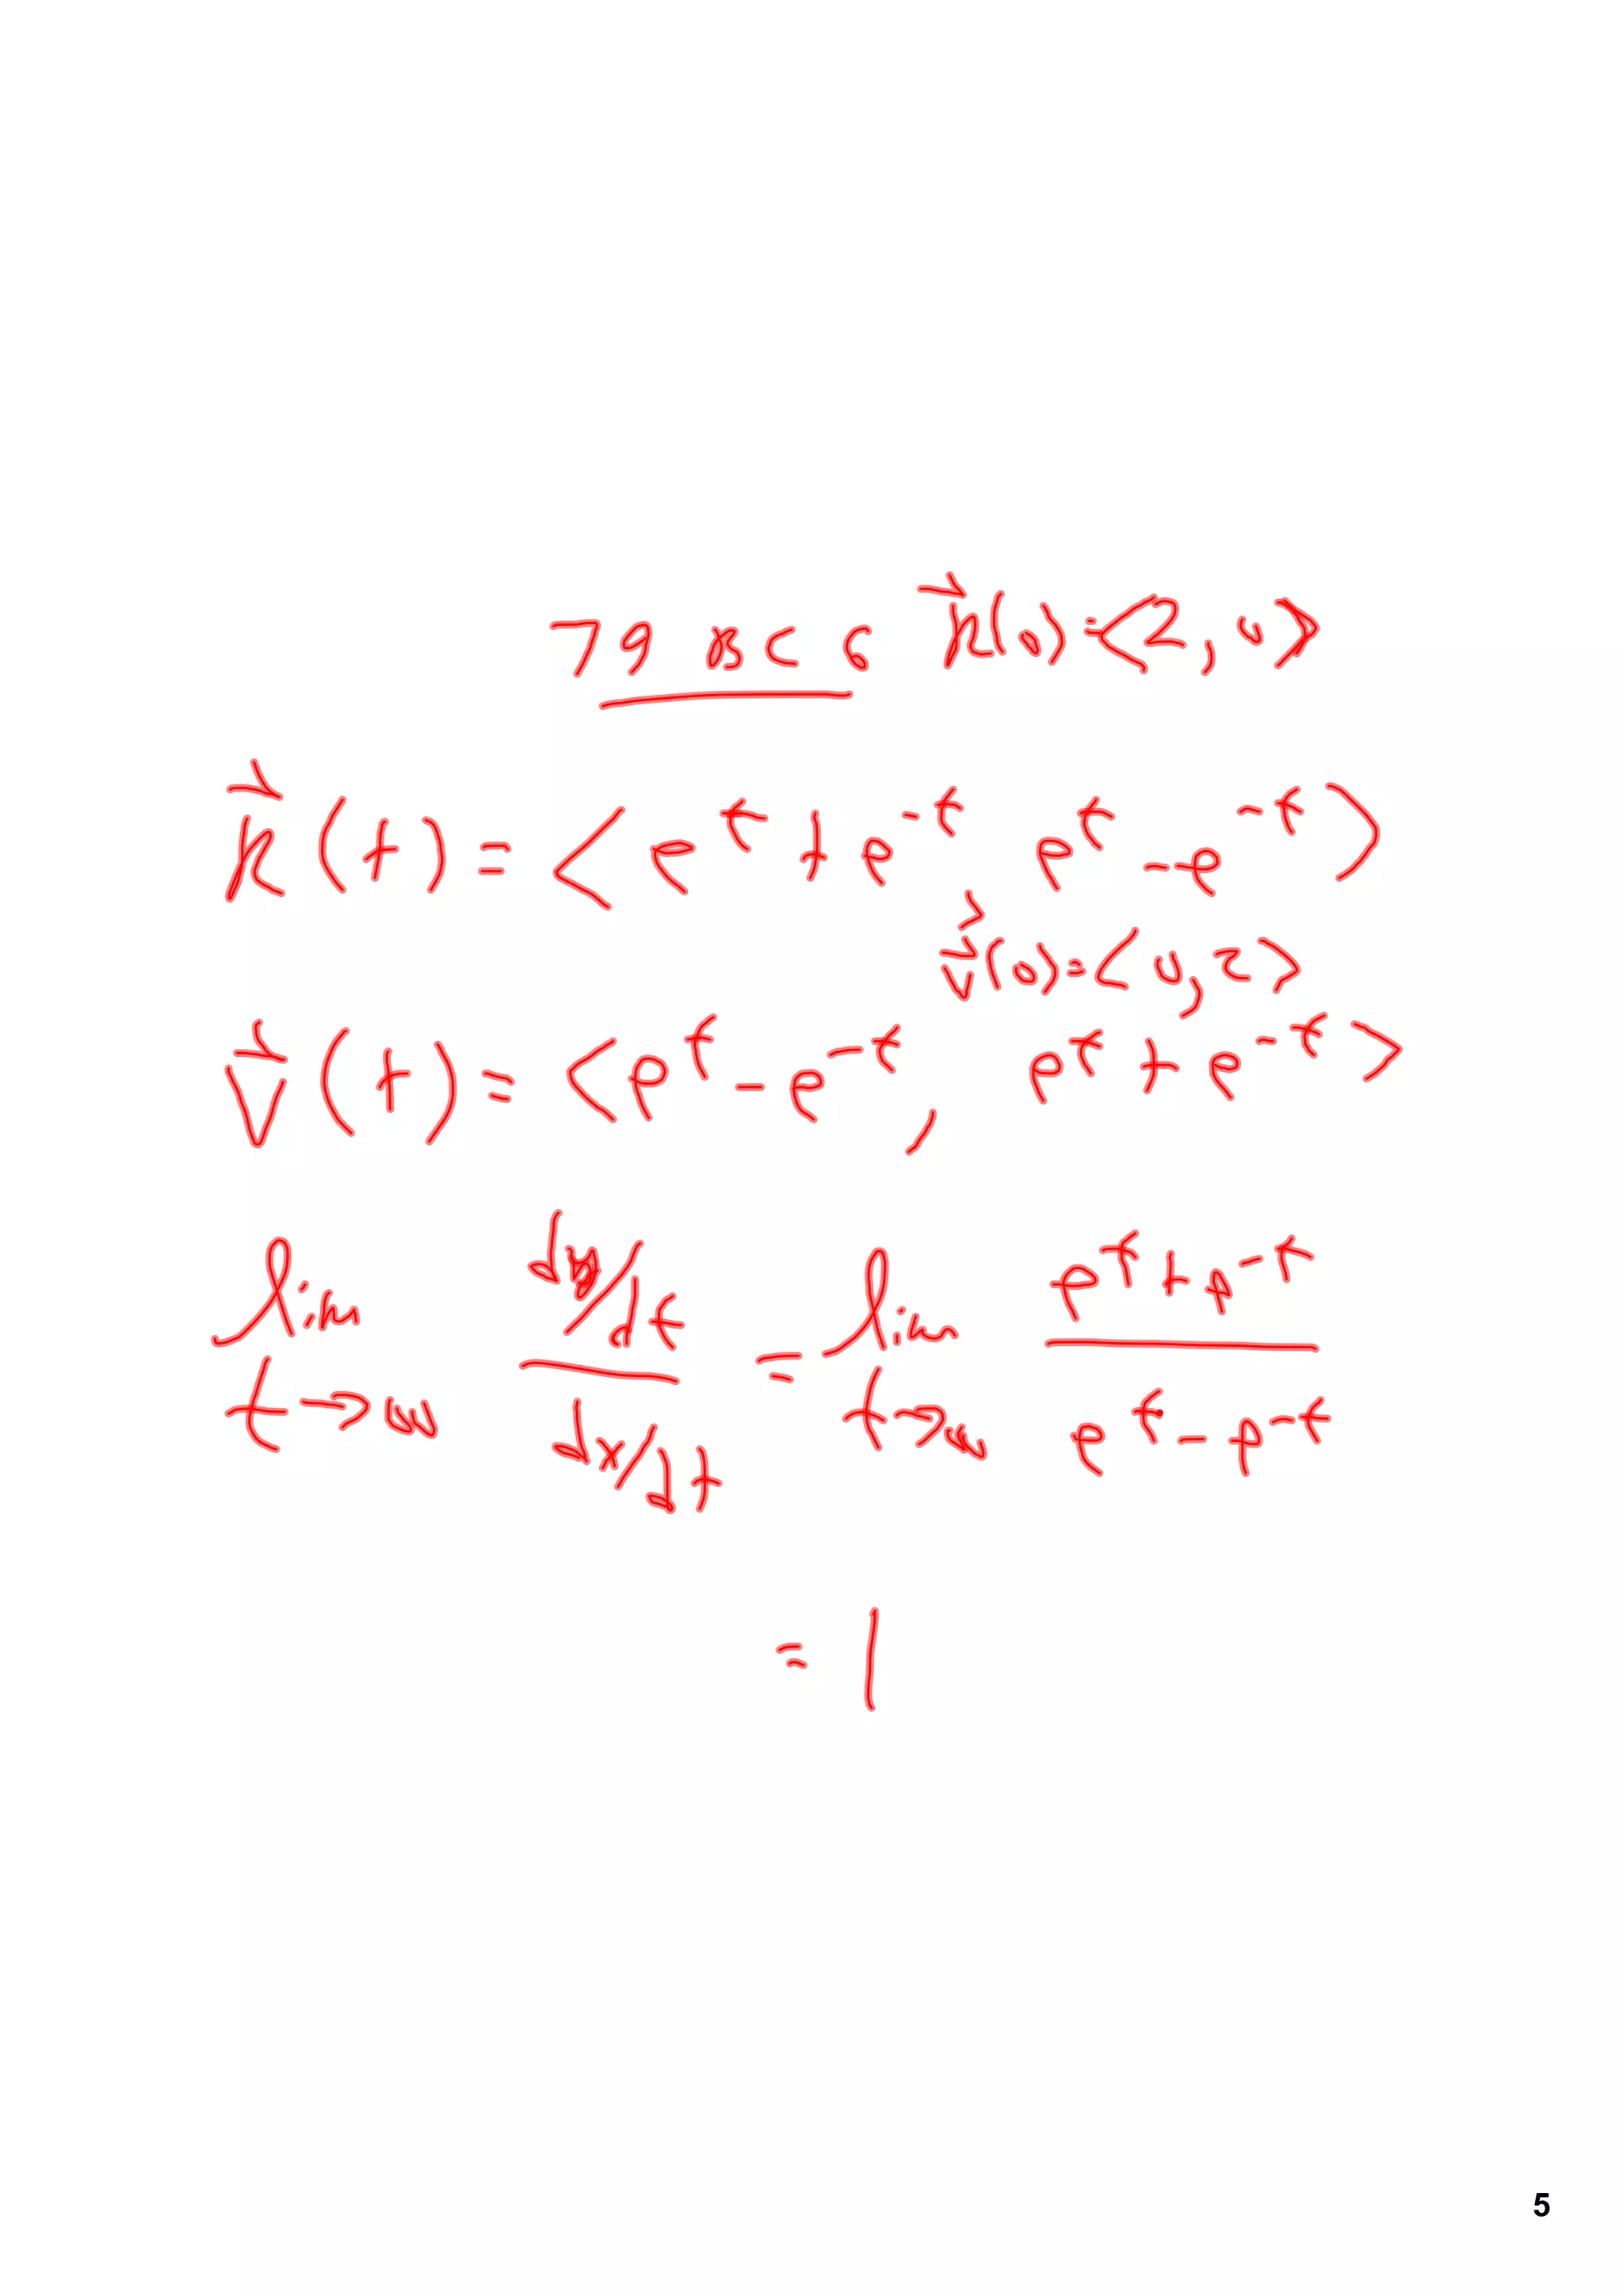 79 BC 6 R⃗(0)=<2, 0>
R⃗(t) = <e^t + e^-t, e^t - e^-t>
v⃗(0)=<0, 2>
v⃗(t) = <e^t - e^-t, e^t + e^-t>
lim t→∞ (dy/dt)/(dx/dt) = lim t→∞ (e^t + e^-t)/(e^t - e^-t)
= 1
5